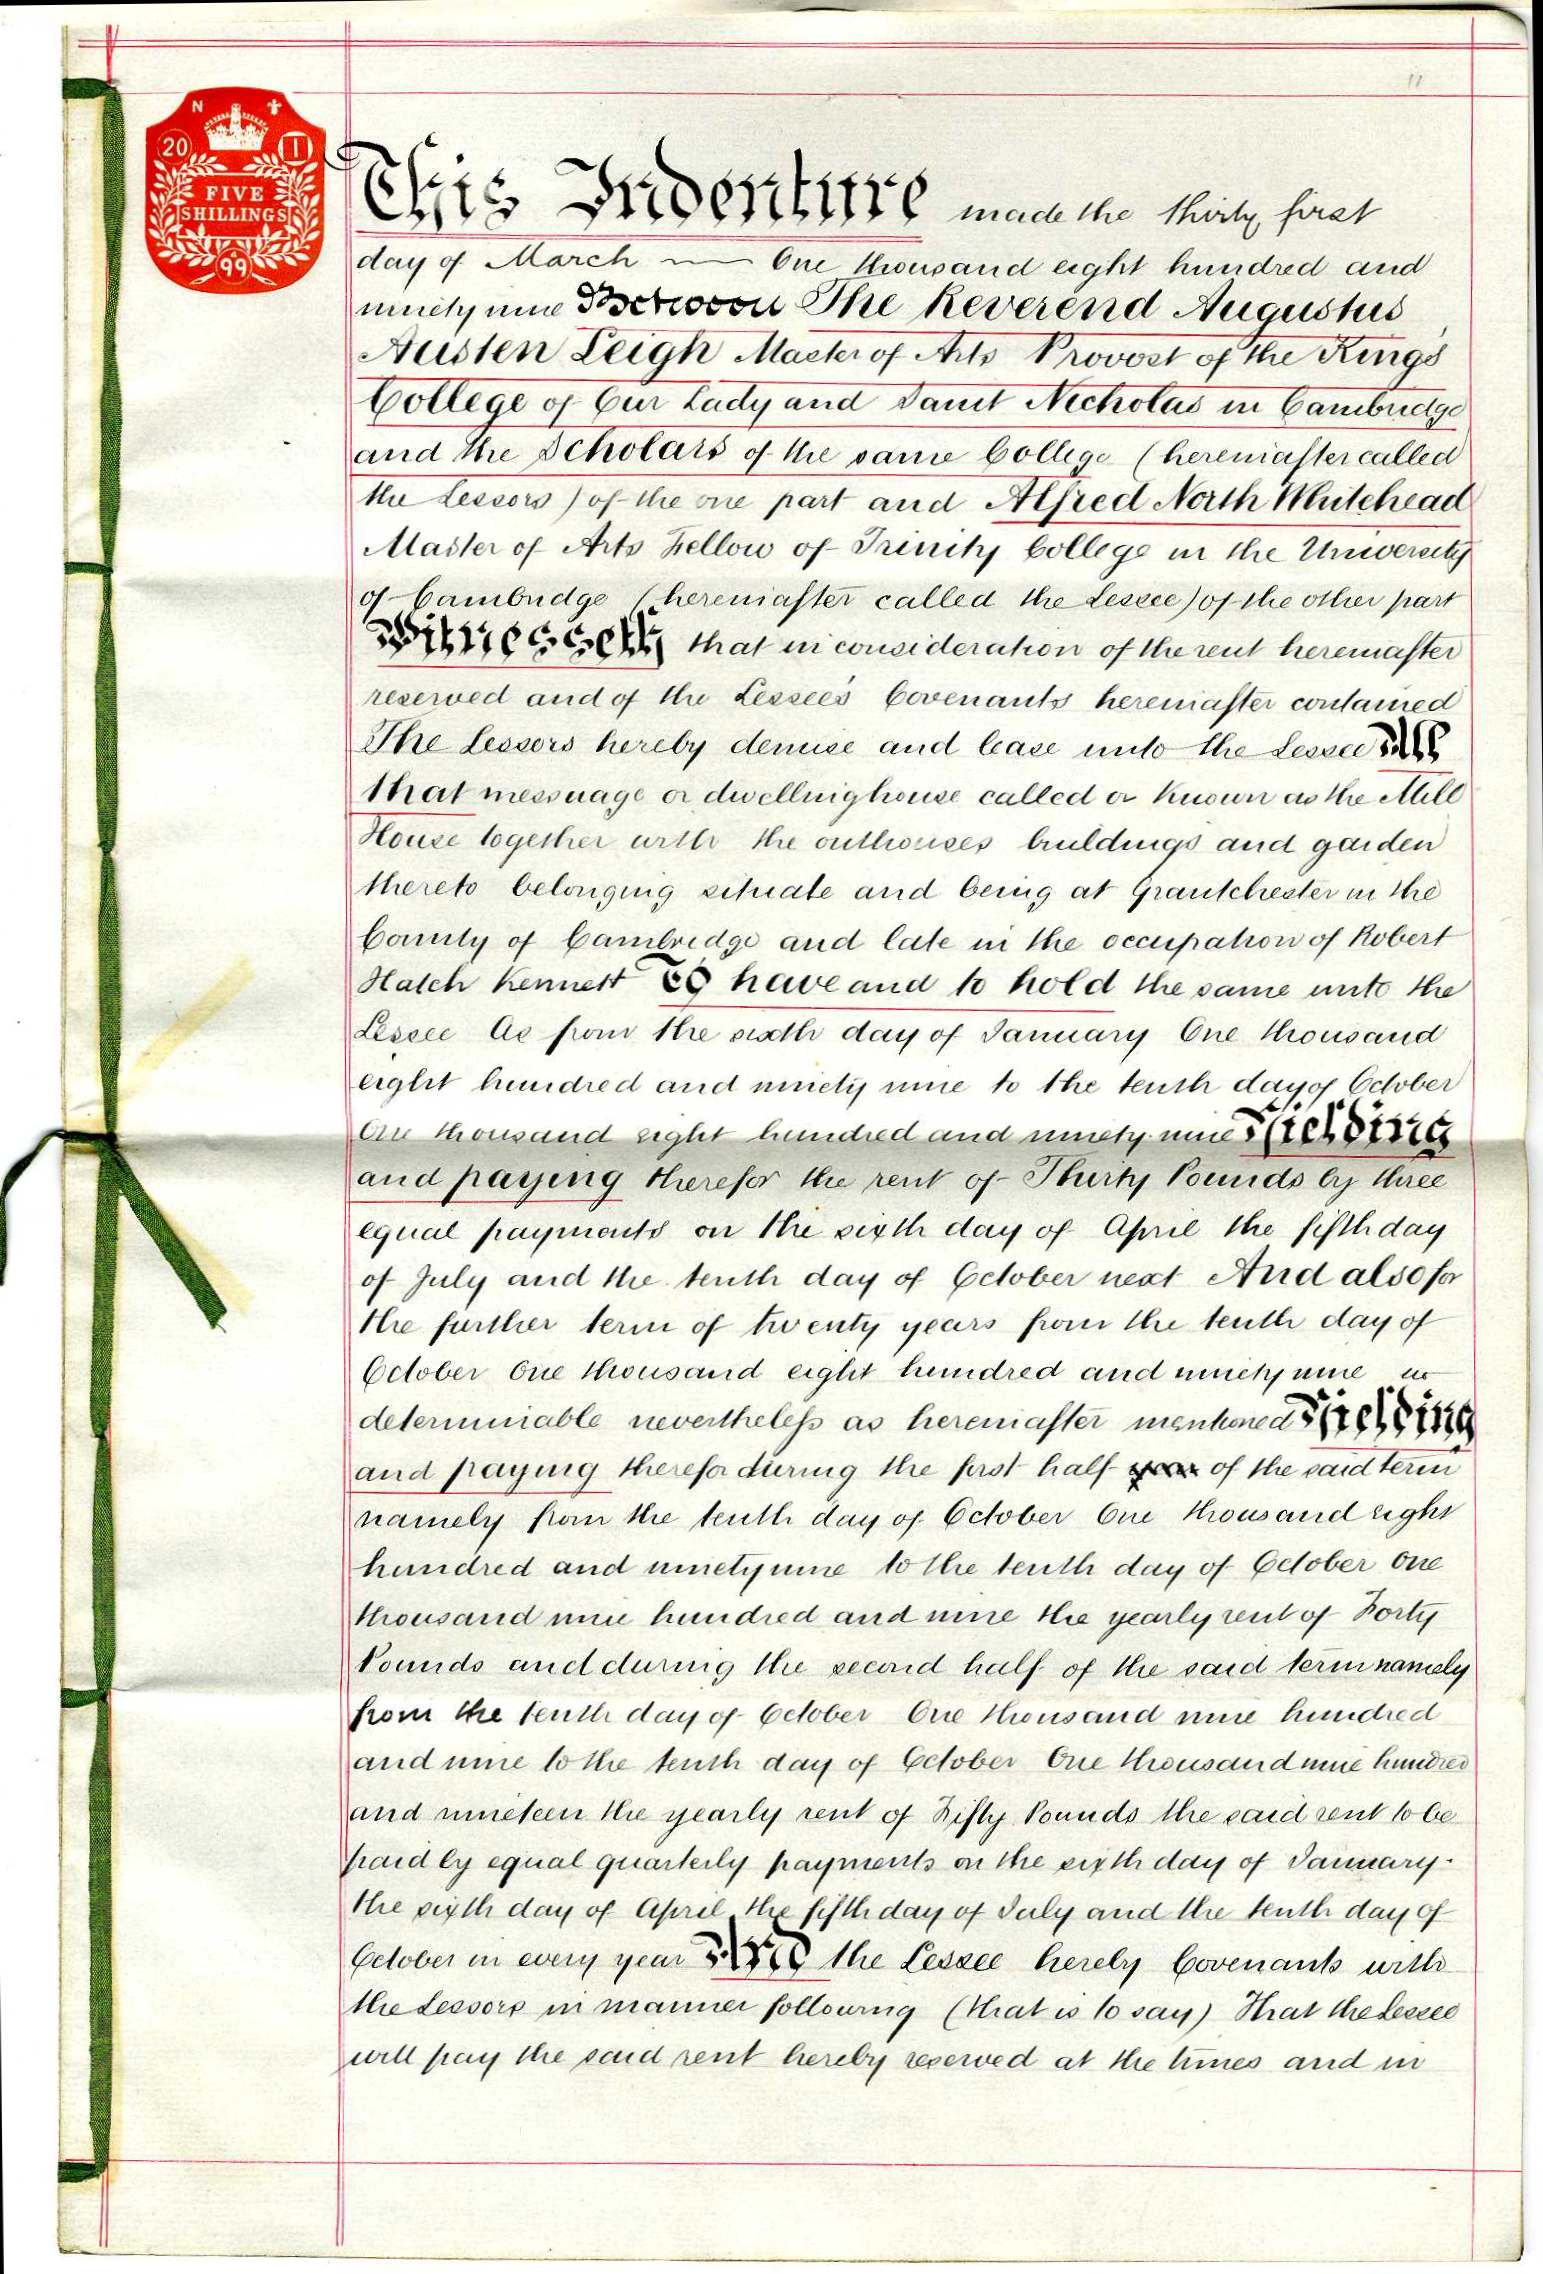 N
20 I
FIVE
SHILLINGS
99
This Indenture made the thirty first
day of March One thousand eight hundred and
ninety nine Between The Reverend Augustus
Austen Leigh Master of Arts Provost of the King's
College of Our Lady and Saint Nicholas in Cambridge
and the Scholars of the same College (hereinafter called
the Lessors) of the one part and Alfred North Whitehead
Master of Arts Fellow of Trinity College in the University
of Cambridge (hereinafter called the Lessee) of the other part
Witnesseth that in consideration of the rent hereinafter
reserved and of the Lessee's Covenants hereinafter contained
The Lessors hereby demise and lease unto the Lessee All
that messuage or dwellinghouse called or known as the Mill
House together with the outhouses buildings and garden
thereto belonging situate and being at Grantchester in the
County of Cambridge and late in the occupation of Robert
Hatch Kennett To have and to hold the same unto the
Lessee As from the sixth day of January One thousand
eight hundred and ninety nine to the tenth day of October
One thousand eight hundred and ninety nine Yielding
and paying therefor the rent of Thirty Pounds by three
equal payments on the sixth day of April the fifth day
of July and the tenth day of October next And also for
the further term of twenty years from the tenth day of
October One thousand eight hundred and ninety nine
determinable nevertheless as hereinafter mentioned Yielding
and paying therefor during the first half year of the said term
namely from the tenth day of October One thousand eight
hundred and ninety nine to the tenth day of October One
thousand nine hundred and nine the yearly rent of Forty
Pounds and during the second half of the said term namely
from the tenth day of October One thousand nine hundred
and nine to the tenth day of October One thousand nine hundred
and nineteen the yearly rent of Fifty Pounds the said rent to be
paid by equal quarterly payments on the sixth day of January
the sixth day of April the fifth day of July and the tenth day of
October in every year And the Lessee hereby Covenants with
the Lessors in manner following (that is to say) That the Lessee
will pay the said rent hereby reserved at the times and in